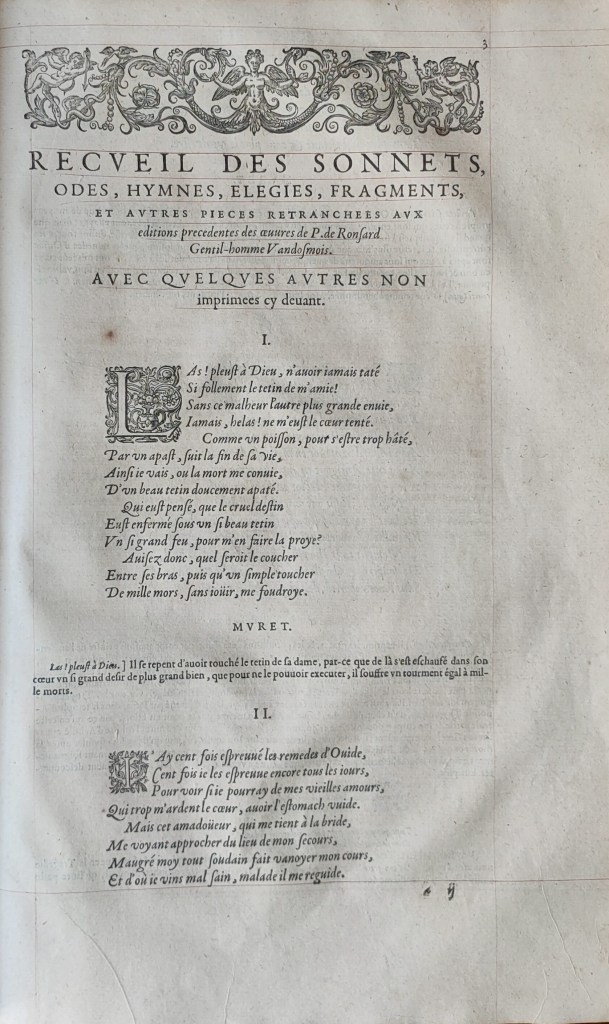 3
RECVEIL DES SONNETS,
ODES, HYMNES, ELEGIES, FRAGMENTS,
ET AVTRES PIECES RETRANCHEES AVX
editions precedentes des œuures de P. de Ronſard
Gentil-homme Vandoſmois.
AVEC QVELQVES AVTRES NON
imprimees cy deuant.
I.
LAs! pleuſt à Dieu, n'auoir iamais taté
Si follement le tetin de m'amie!
Sans ce malheur l'autre plus grande enuie,
Iamais, helas! ne m'euſt le cœur tenté.
Comme vn poiſſon, pour s'eſtre trop hâté,
Par vn apaſt, ſuit la fin de ſa vie,
Ainſi ie vais, ou la mort me conuie,
D'vn beau tetin doucement apaté.
Qui euſt penſé, que le cruel deſtin
Euſt enfermé ſous vn ſi beau tetin
Vn ſi grand feu, pour m'en faire la proye?
Auiſez donc, quel ſeroit le coucher
Entre ſes bras, puis qu'vn ſimple toucher
De mille mors, ſans ioüir, me foudroye.
MVRET.
Las! pleuſt à Dieu.] Il ſe repent d'auoir touché le tetin de ſa dame, par-ce que de là s'eſt eſchaufé dans ſon
cœur vn ſi grand deſir de plus grand bien, que pour ne le pouuoir executer, il ſouffre vn tourment égal à mil-
le morts.
II.
I'Ay cent fois eſpreuué les remedes d'Ouide,
Cent fois ie les eſpreuue encore tous les iours,
Pour voir ſi ie pourray de mes vieilles amours,
Qui trop m'ardent le cœur, auoir l'eſtomach vuide.
Mais cet amadoüeur, qui me tient à la bride,
Me voyant approcher du lieu de mon ſecours,
Maugré moy tout ſoudain fait vanoyer mon cours,
Et d'où ie vins mal ſain, malade il me reguide.
ij